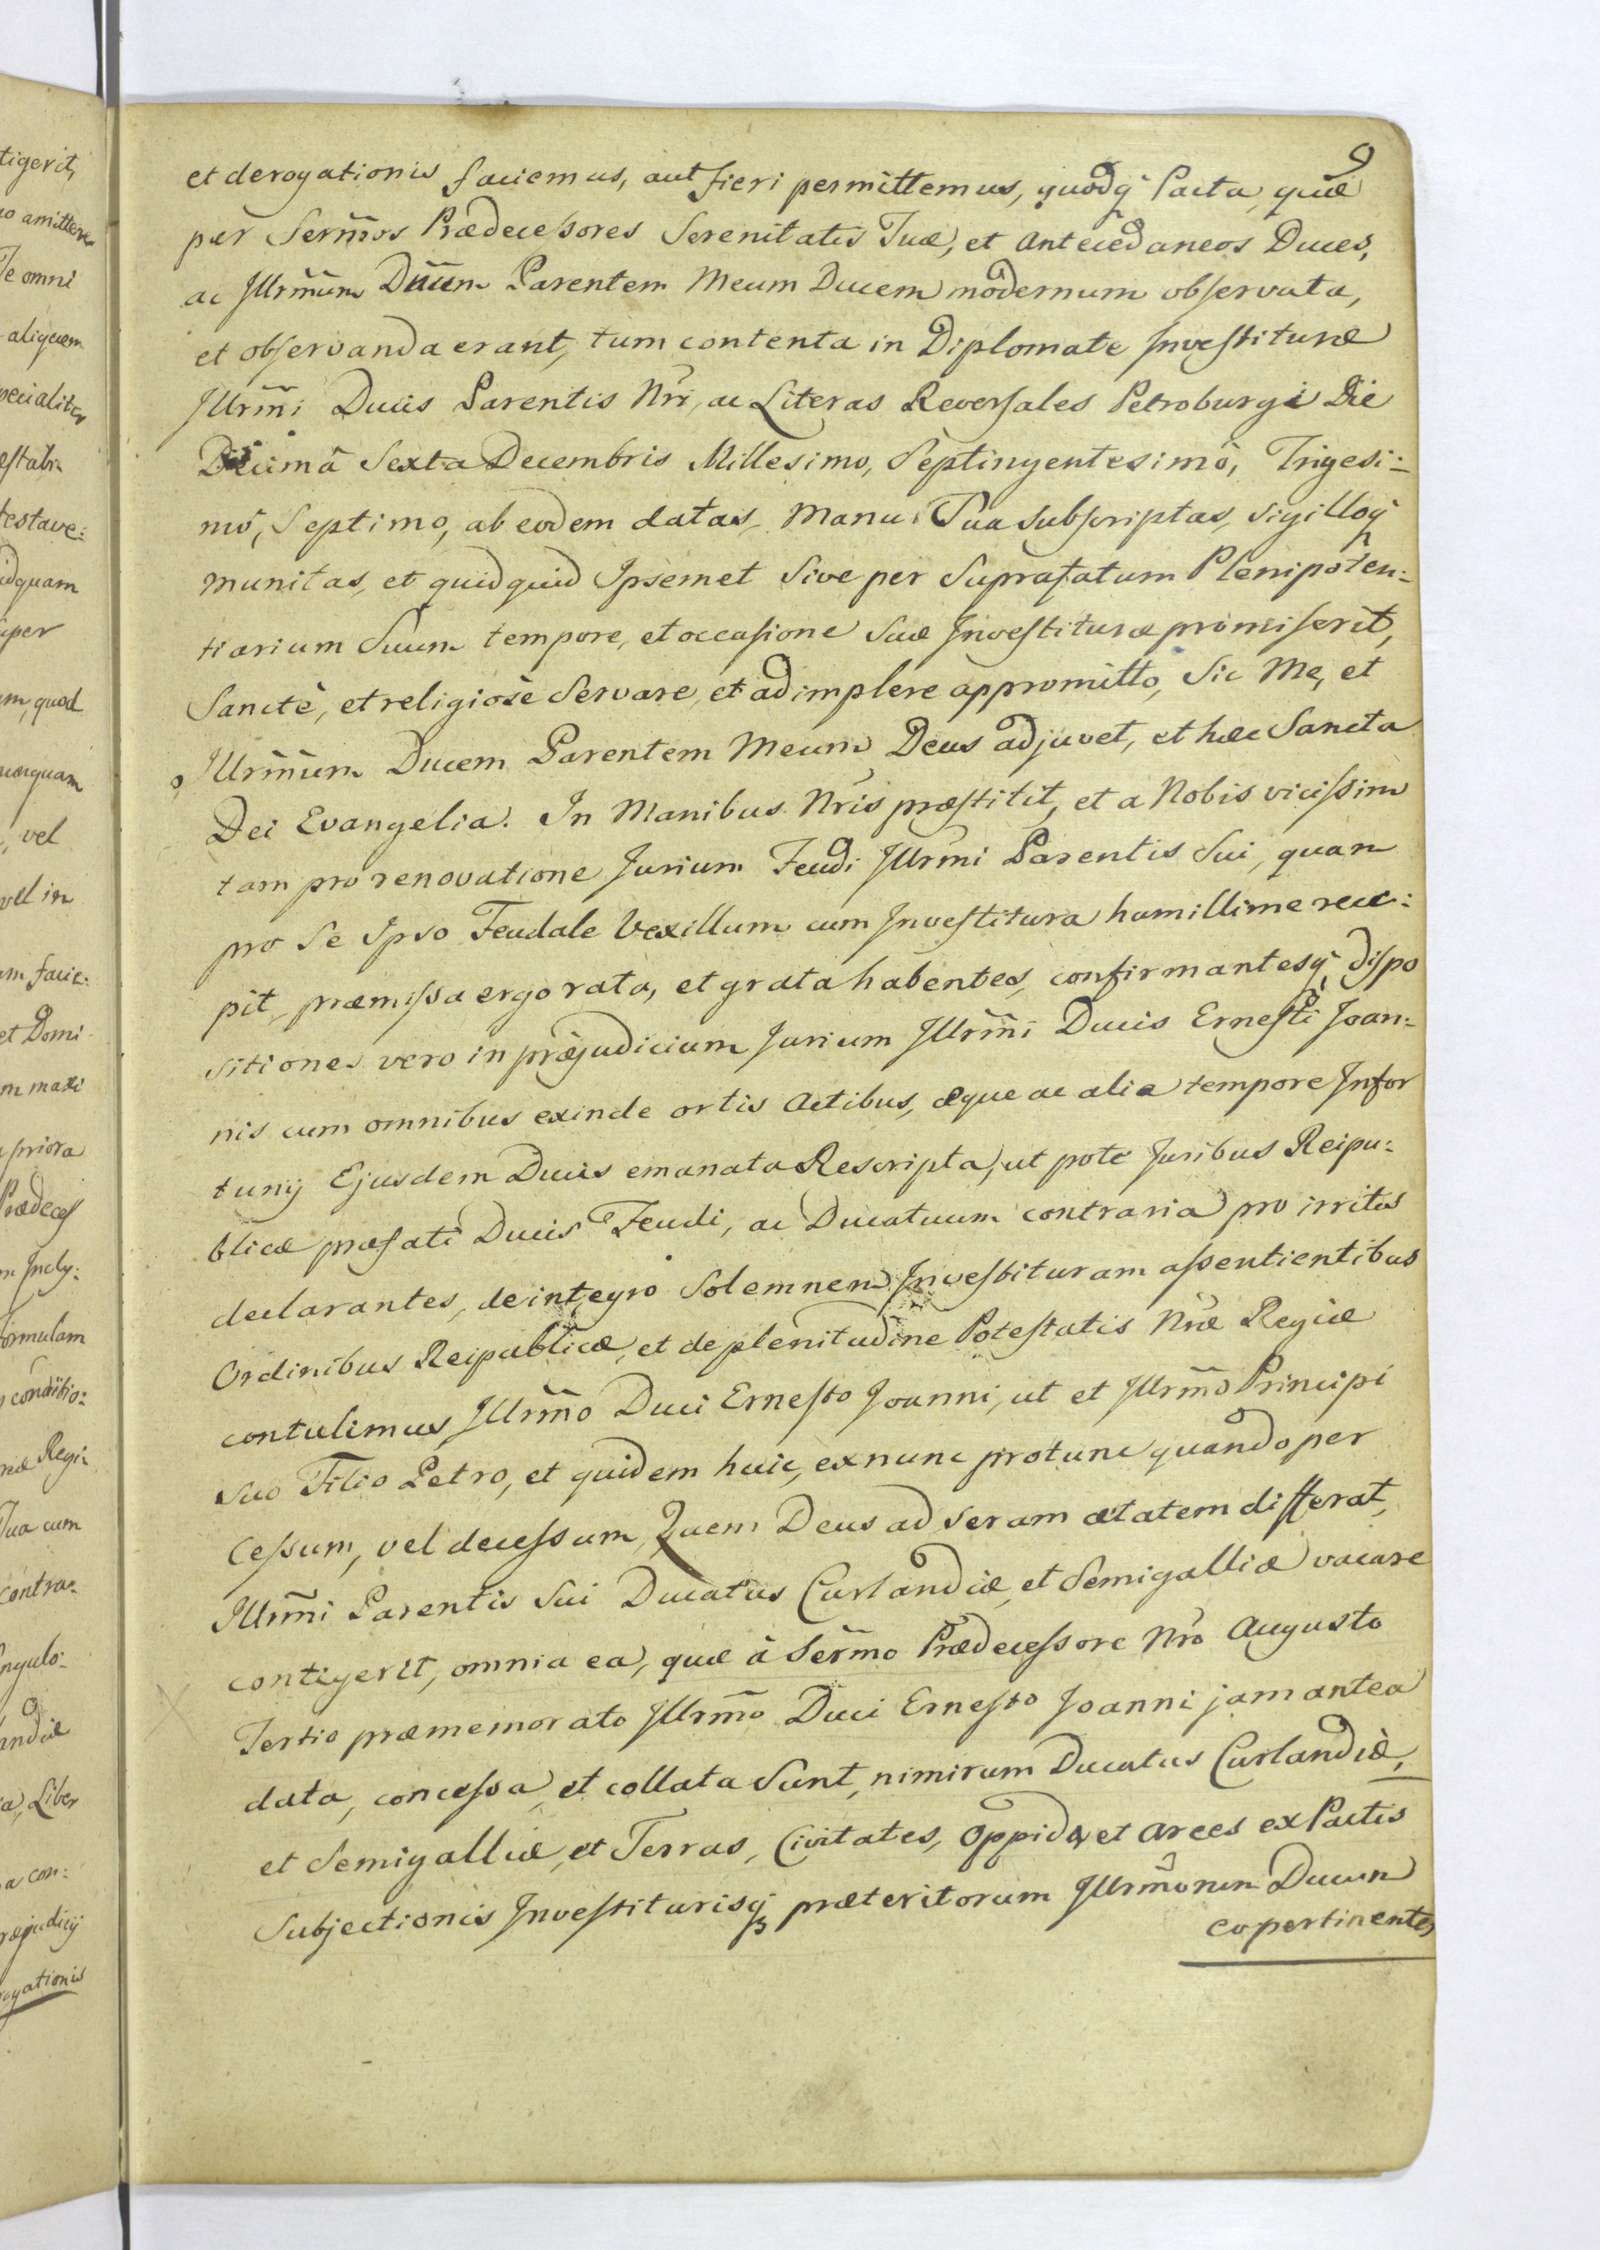 9
et derogationis faciemus, aut fieri permittemus, quodq̃ Pacta, quæ
per Serm̃os Prædecessores Serenitatis Tuæ, et antecedaneos Duces,
ac Illrm̃um Dñum Parentem Meum Ducem modernum observata,
et observanda erant, tum contenta in Diplomate Investituræ
Illrm̃i Ducis Parentis Nri, ac Literas Reversales Petroburgi Die
Decimâ Sexta Decembris Millesimo, Septingentesimô, Trigesi:
mô, Septimo, ab eodem datas, Manu Sua subscriptas, sigilloq̃
munitas, et quidquid Ipsemet sive per Suprafatum Plenipoten:
tiarium Suum tempore, et occasione Suæ Investituræ promiserit,
Sanctè, et religiosè Servare, et adimplere appromitto, Sic Me, et
Illrm̃um Ducem Parentem Meum Deus adjuvet, et hæc Sancta
Dei Evangelia. In Manibus Nris præstitit, et a Nobis vicissim
tam pro renovatione Jurium Feudi Illrm̃i Parentis Sui, quam
pro Se Ipso Feudale Vexillum cum Investitura humillime rece:
pit, præmissa ergo rata, et grata habentes, confirmantesq̃, dispo
sitiones vero in præjudicium Jurium Illrm̃i Ducis Ernesti Joan:
nis cum omnibus exinde ortis Actibus, æque ac alia tempore Infor
tunij Ejusdem Ducis emanata Rescripta, ut pote Juribus Reipu:
blicæ præfati Ducis Feudi, ac Ducatuum contraria pro irritis
declarantes, de integro Solemnem Investituram assentientibus
Ordinibus Reipublicæ, et de plenitudine Potestatis Nræ Regiæ
contulimus Illrm̃o Duci Ernesto Joanni, ut et Illrm̃o Principi
suo Filio Petro, et quidem huic, ex nunc pro tunc quando per
Cessum, vel decessum, Quem Deus ad seram ætatem differat,
Illrm̃i Parentis Sui Ducatus Curlandiæ, et Semigalliæ vacare
contigerit, omnia ea, quæ à Serm̃o Prædecessore Nro Augusto
Tertio præmemorato Illrm̃o Duci Ernesto Joanni jam antea
data, concessa, et collata Sunt, nimirum Ducatus Curlandiæ,
et Semigalliæ, et Terras, Civitates, Oppida, et Arces ex Pactis
Subjectionis Investiturisq̃ præteritorum Illrm̃orum Ducum
eo pertinentes